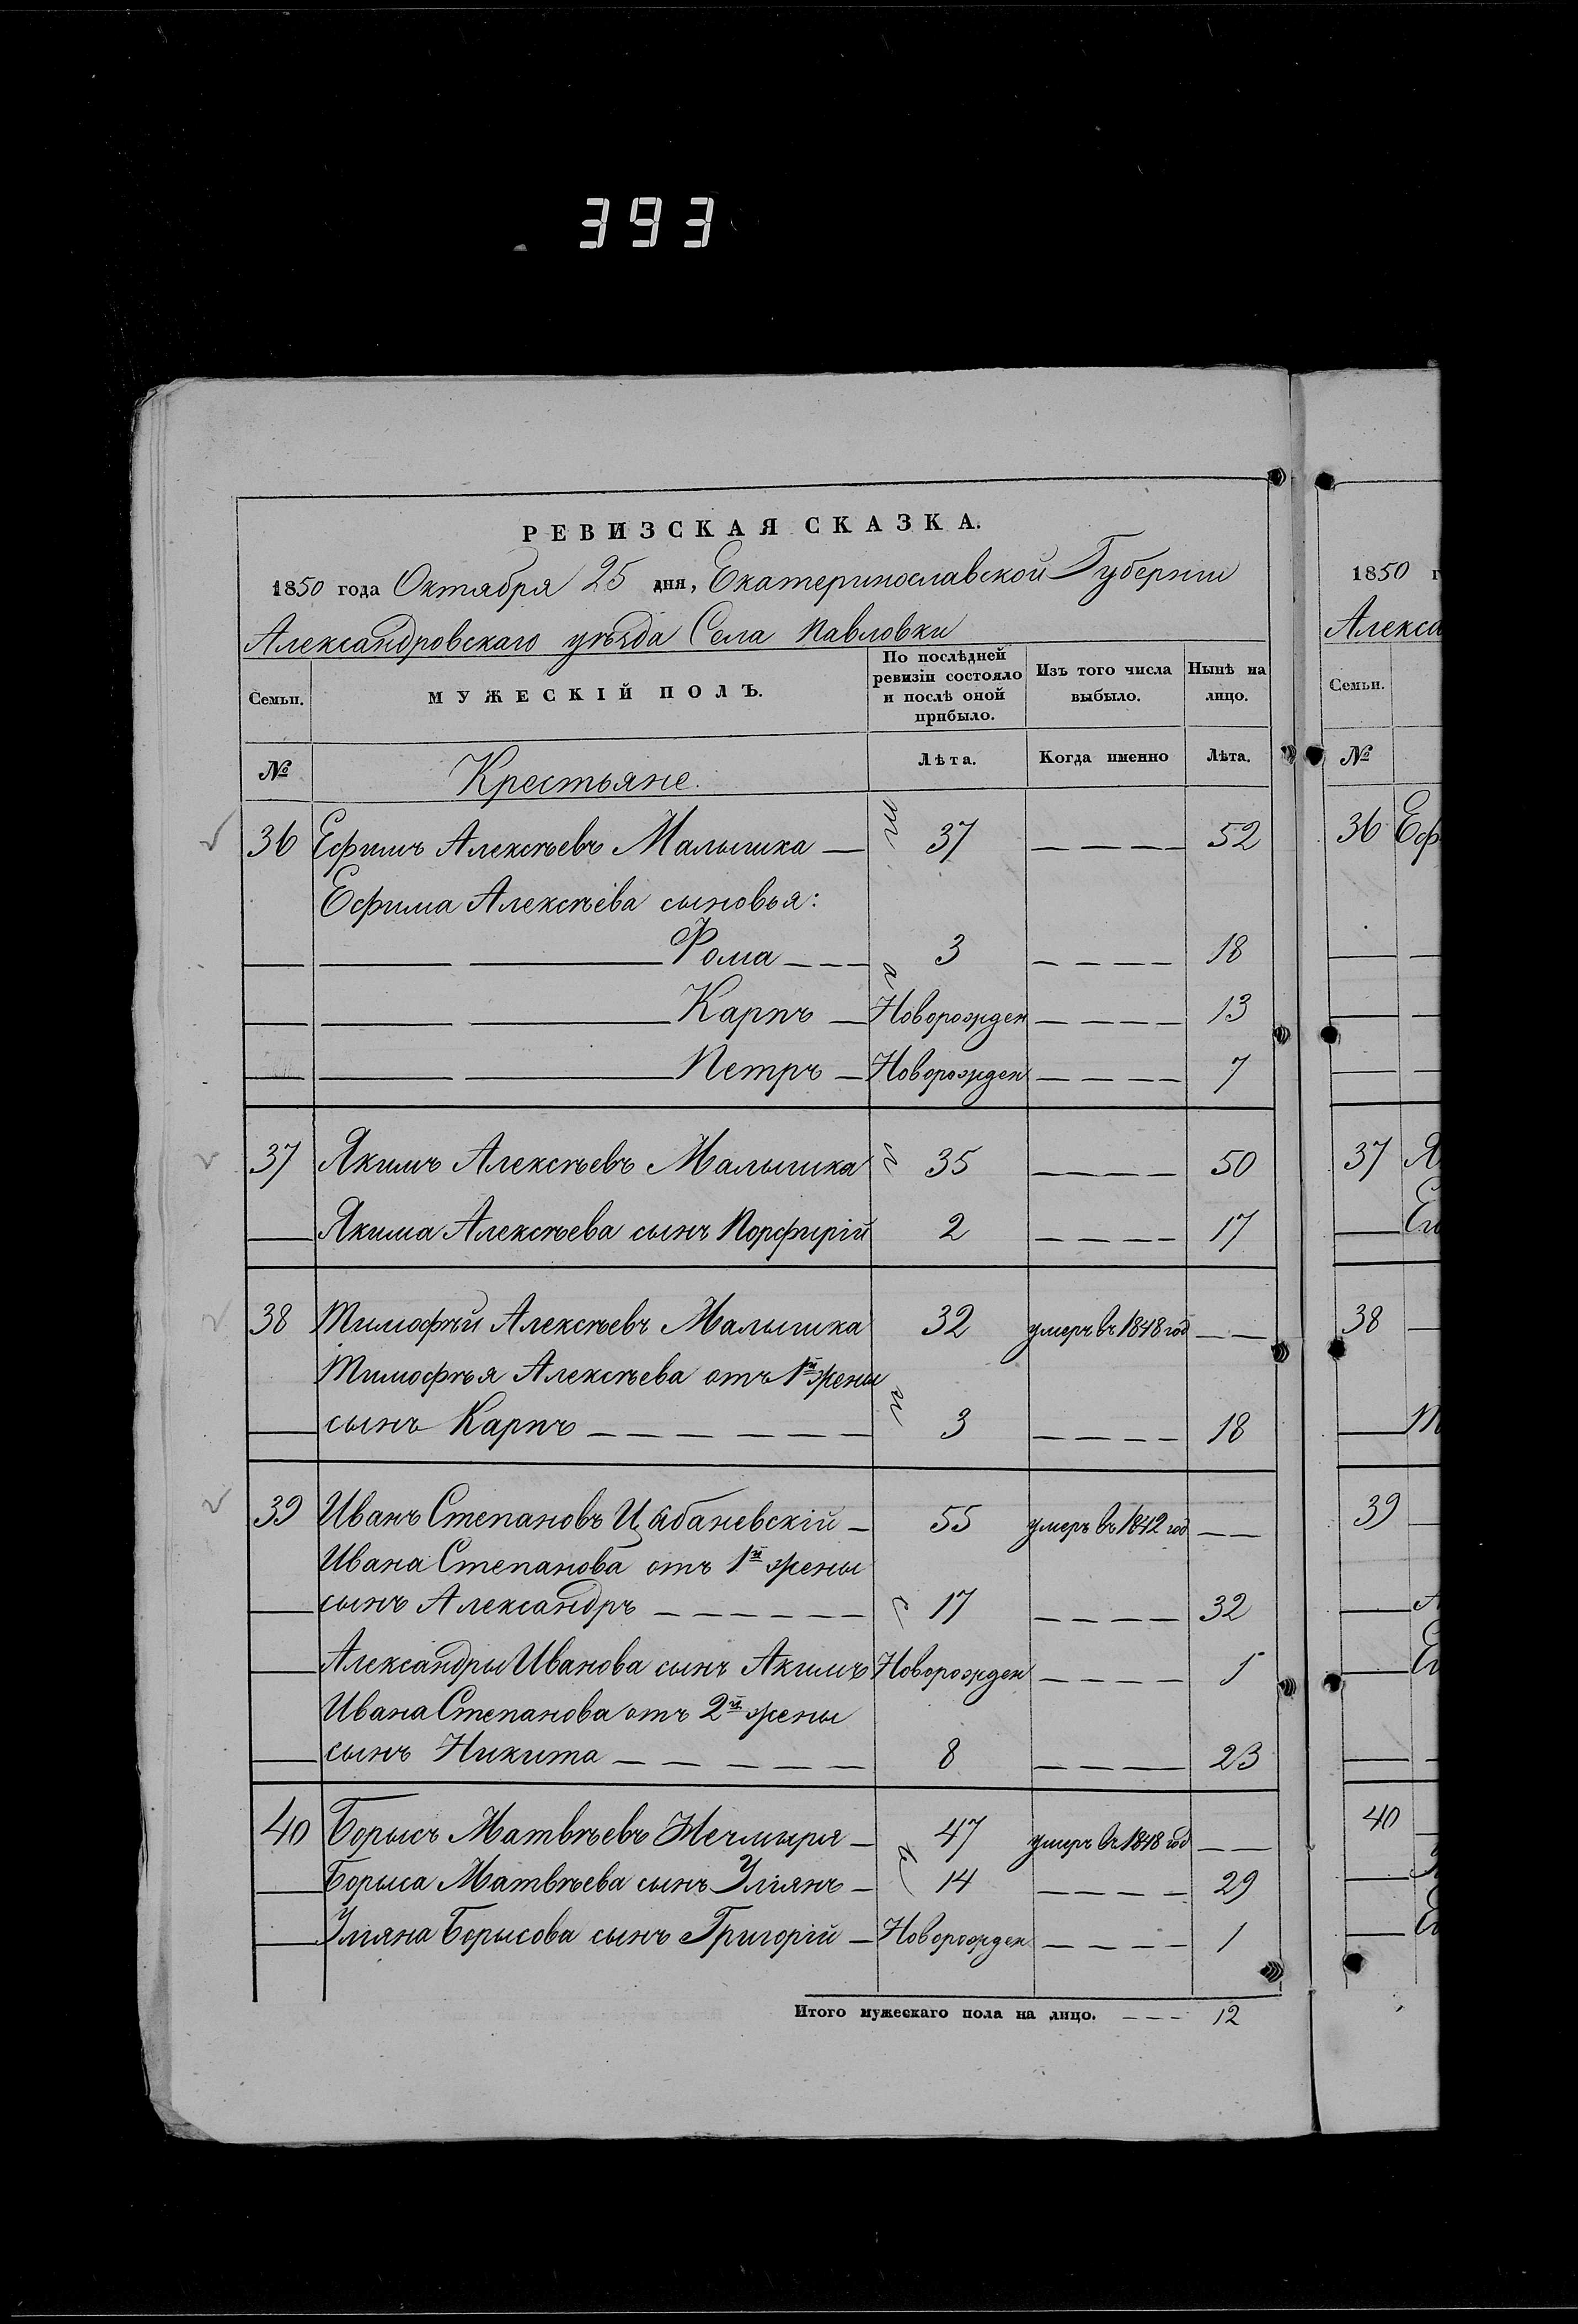 393
РЕВИЗСКАЯ СКАЗКА.
1850 года Октября 25 дня, Екатеринославской Губернии
Александровскаго уѣзда Села Павловки
Семьи. МУЖЕСКІЙ ПОЛЪ. По послѣдней ревизіи состояло и послѣ оной прибыло. Изъ того числа выбыло. Нынѣ на лицо.
№ Крестьяне. Лѣта. Когда именно Лѣта.
36 Ефимъ Алексѣевъ Малышка — 37 — — — — 52
Ефима Алексѣева сыновья:
Фома — — — 3 — — — — 18
Карпъ — Новорожден — — — — 13
Петръ — Новорожден — — — — 7
37 Якимъ Алексѣевъ Малышка 35 — — — — 50
Якима Алексѣева сынъ Порфирій 2 — — — — 17
38 Тимофѣй Алексѣевъ Малышка 32 умеръ въ 1848 год — —
Тимофѣя Алексѣева отъ 1й жены
сынъ Карпъ — — — — — — 3 — — — — 18
39 Иванъ Степановъ Цабаневскій — 55 умеръ въ 1842 год — —
Ивана Степанова отъ 1й жены
сынъ Александръ — — — — — — 17 — — — — 32
Александры Иванова сынъ Акимъ Новорожден — — — — 5
Ивана Степанова отъ 2й жены
сынъ Никита — — — — — 8 — — — — 23
40 Борысъ Матвѣевъ Нечмыря — 47 умеръ въ 1848 год — —
Борыса Матвѣева сынъ Улиянъ — 14 — — — — 29
Улияна Борысова сынъ Григорій — Новорожден — — — — 1
Итого мужескаго пола на лицо. — — — 12
1850 г
Алекса
Семьи.
№
36 Еф
37 Я
Ег
38
39
40